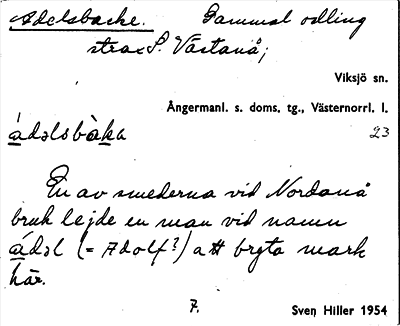 Adelsbacke. Gammal odling
strax S. Västanå;
Viksjö sn.
Ångermanl. s. doms. tg., Västernorrl. l.
ádəlsbàka 23
En av smederna vid Nordanå
bruk lejde en man vid namn
ádəl (= Adolf?) att bryta mark
här.
7. Sven Hiller 1954